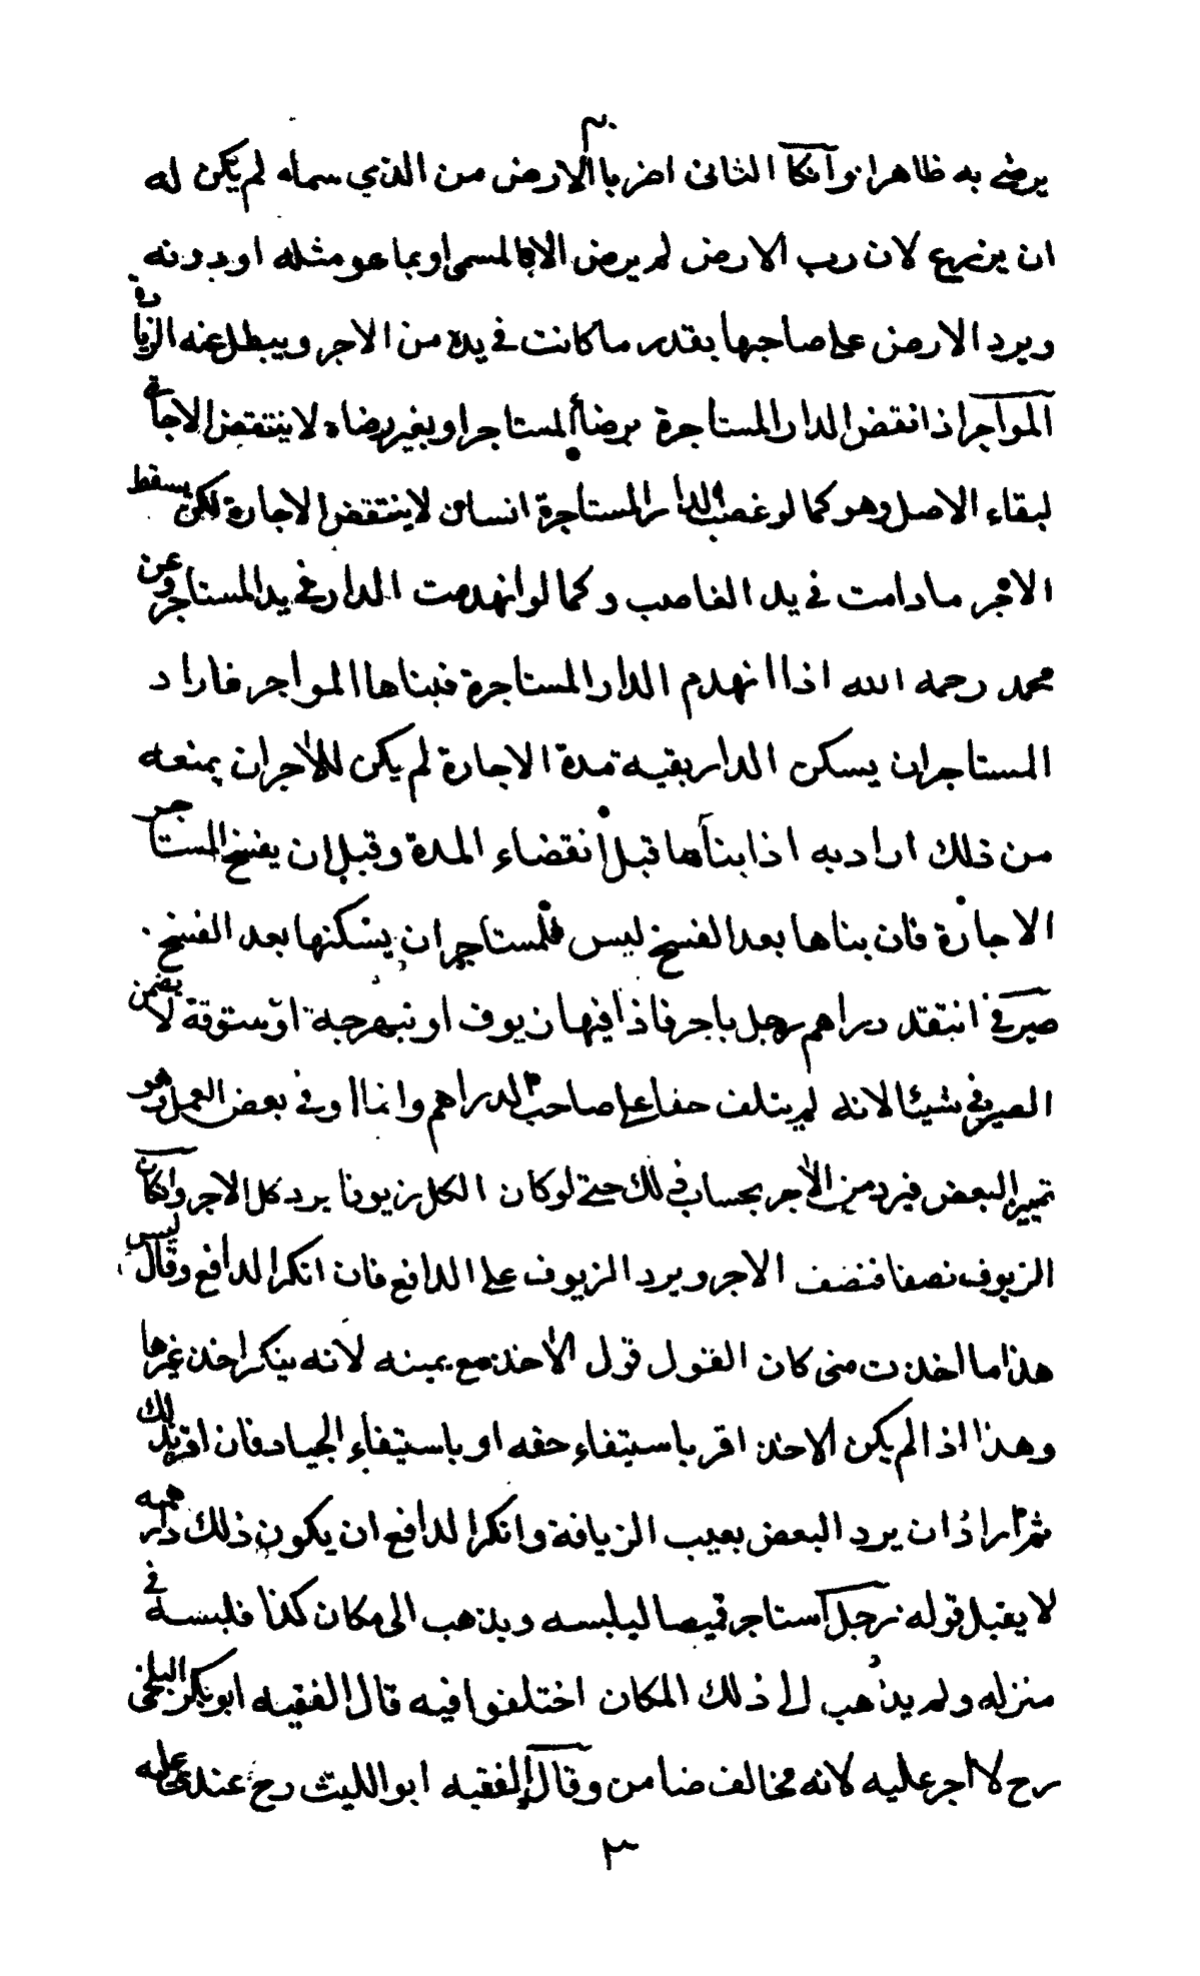 يرضى به ظاهرا وانكا الثانى اضر بالارض من الذي سماه لم يكن له
ان يزرع لان رب الارض لم يرض الا بالمسمى او بما هو مثله او بدونه
ويرد الارض على صاحبها بقدر ما كانت في يده من الاجر ويبطل عنه الزيادة
المواجر اذا نقض الدار المستاجرة برضا المستاجر او بغير رضاه لا ينتقض الاجارة
لبقاء الاصل وهو كما لو غصب الدار المستاجرة انسان لا ينتقض الاجارة لكن يسقط
الاجر ما دامت في يد الغاصب وكما لو انهدمت الدار في يد المستاجر وعن
محمد رحمه الله اذا انهدم الدار المستاجرة فبناها المواجر فاراد
المستاجر ان يسكن الدار بقية مدة الاجارة لم يكن للاجر ان يمنعه
من ذلك اراد به اذا بناها قبل انقضاء المدة وقبل ان يفسخ المستاجر
الاجارة فان بناها بعد الفسخ ليس للمستاجر ان يسكنها بعد الفسخ
صيرفي انتقد دراهم رجل باجر فاذا فيها زيوف او نبهرجة او ستوقة لا يضمن
الصيرفي شيئا لانه لم يتلف حقا على صاحب الدراهم وانما اوفى بعض العمل وهو
تمييز البعض فيرد من الاجر بحساب ذلك حتى لو كان الكل زيوفا يرد كل الاجر وانكان
الزيوف نصفا فنصف الاجر ويرد الزيوف على الدافع فان انكر الدافع وقال ليس
هذا ما اخذت منى كان القول قول الاخذ مع يمينه لانه ينكر اخذ غيرها
وهذا اذا لم يكن الاخذ اقر باستيفاء حقه او باستيفاء الجياد فان اقر بذلك
ثم اراد ان يرد البعض بعيب الزيافة وانكر الدافع ان يكون ذلك دراهمه
لا يقبل قوله رجل استاجر قميصا ليلبسه ويذهب الى مكان كذا فلبسه في
منزله ولم يذهب الى ذلك المكان اختلفوا فيه قال الفقيه ابو بكر البلخى
رح لا اجر عليه لانه مخالف ضامن وقال الفقيه ابو الليث رح عندى عليه
٣